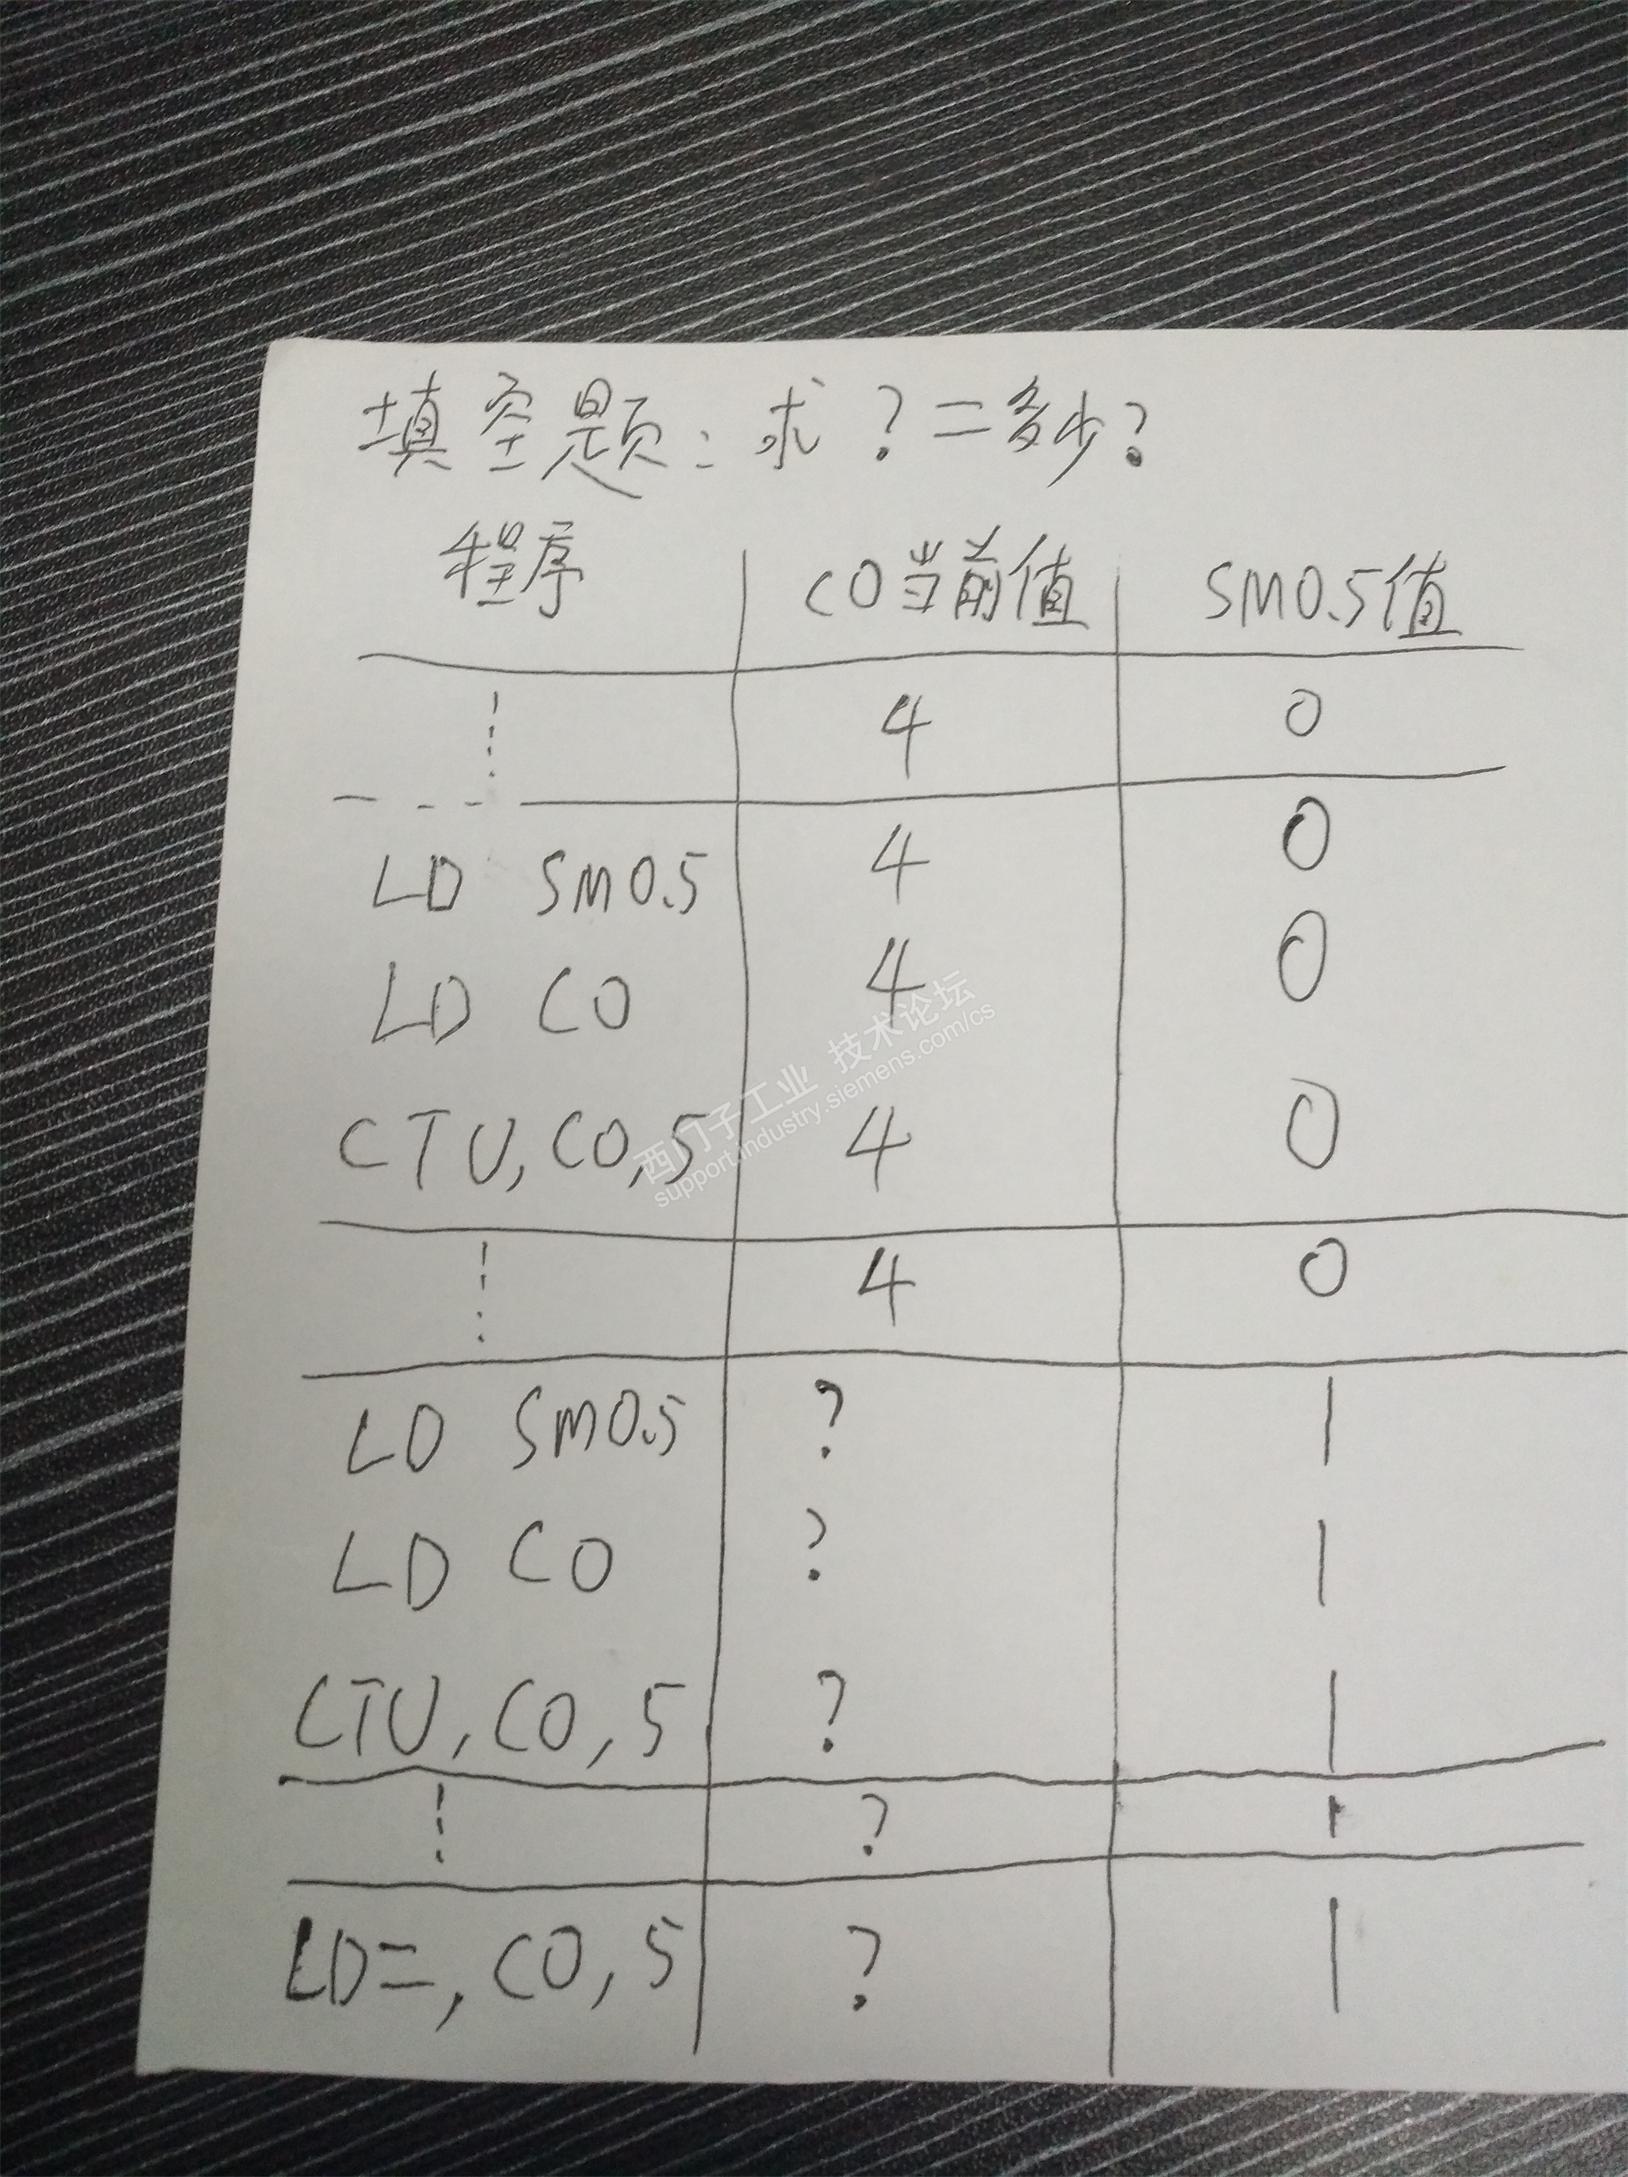 填空题：求？=多少？
程序 C0当前值 SM0.5值
⋮ 4 0
LD SM0.5 4 0
LD C0 4 0
CTU, C0, 5 4 0
⋮ 4 0
LD SM0.5 ? 1
LD C0 ? 1
CTU, C0, 5 ? 1
⋮ ? 1
LD=, C0, 5 ? 1
西门子工业 技术论坛
support.industry.siemens.com/cs